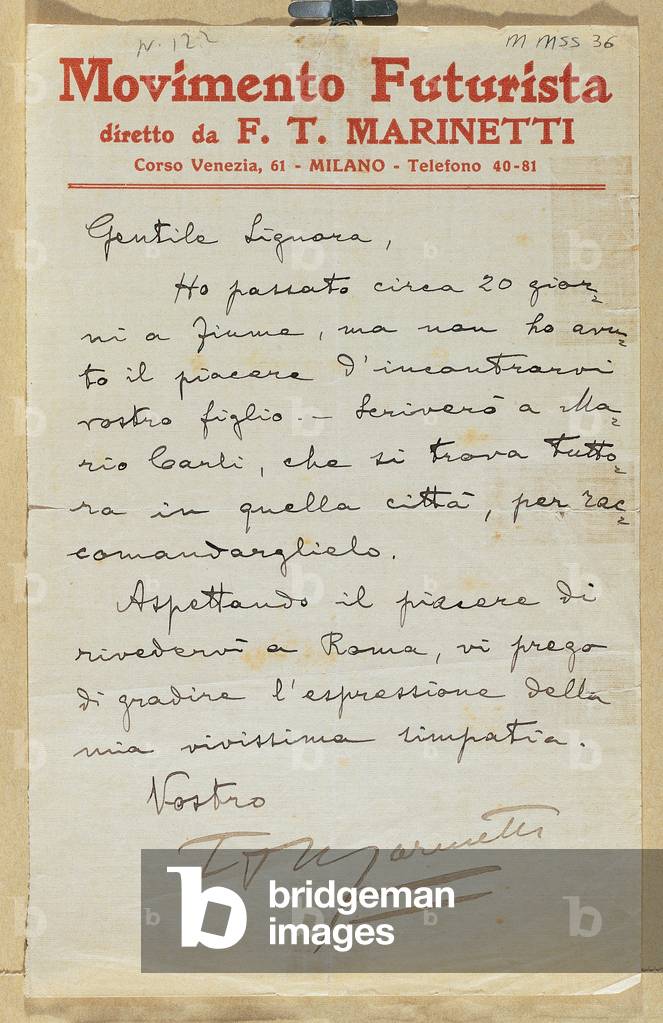 N. 122
M MSS 36
Movimento Futurista
diretto da F. T. MARINETTI
Corso Venezia, 61 - MILANO - Telefono 40-81
Gentile Signora,
Ho passato circa 20 gior=
ni a Fiume, ma non ho avu=
to il piacere d'incontrarvi
vostro figlio. – Scriverò a Ma=
rio Carli, che si trova tutto=
ra in quella città, per rac=
comandarglielo.
Aspettando il piacere di
rivedervi a Roma, vi prego
di gradire l'espressione della
mia vivissima simpatia.
Vostro
F T Marinetti
bridgeman
images